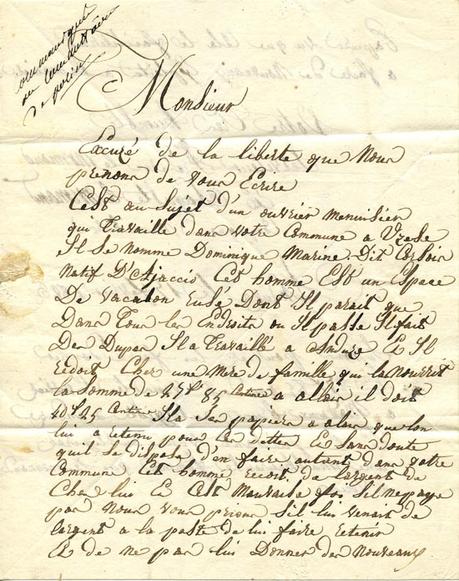 de police
Monsieur
Excuzé de la liberte que Nous
prenons de vous Ecrire
Cest au sujet d'un ouvrier menuisier
qui Travaille dans votre Commune a
Il se nomme Dominique Marine Dit
Natif D'Ajaccio Cet homme Est un Espece
De Dont Il parait que
Dans Tous les Endroits ou Il passe Il fait
Des Dupes Il a Travaillé a Anduze Et Il
Redoit Chez une Mere de famille qui la Nourrit
la Somme de 27f 85 Centime a alais il doit
40f 25 Centime Il a ses papiers a alais que lon
lui a retenu pour ces dettes Et sans doute
quil se disposa d'en faire autant dans votre
Commune Cet homme recoit de largent de
Chez lui Et Cest Mauvaise foi Sil ne paye
pas Nous vous prions Sil lui venait de
largent a la poste de lui faire retenir
Et de ne pas lui Donner des Nouveaux